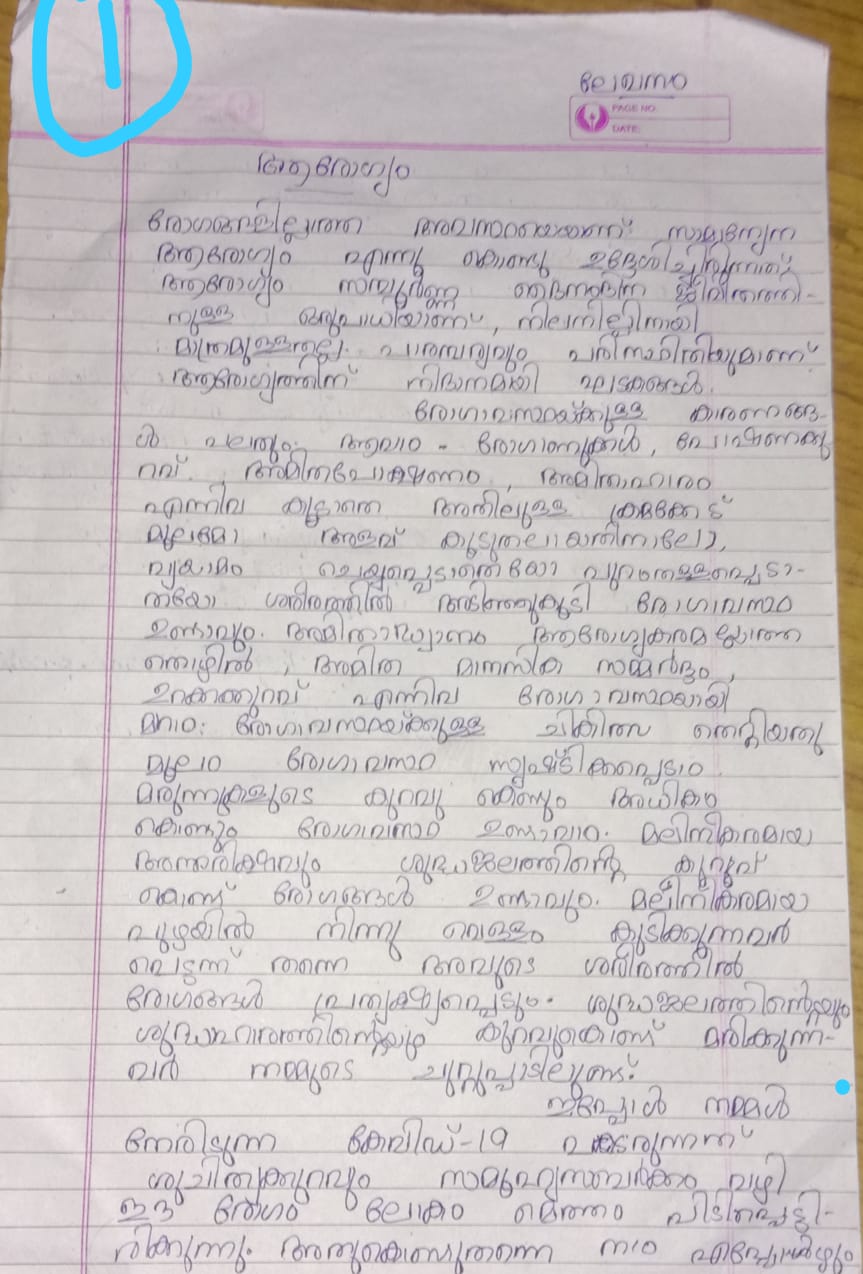 1
ലേഖനം
PAGE NO.
DATE:
ആരോഗ്യം
രോഗങ്ങളില്ലാത്ത അവസ്ഥയെയാണ് സാമാന്യേന
ആരോഗ്യം എന്നു കൊണ്ടു ഉദ്ദേശിച്ചിരുന്നത്.
ആരോഗ്യം സമ്പൂർണ്ണ ദൈനംദിന ജീവിതത്തി-
നുള്ള ഒരുപാധിയാണ്, നിലനില്പിനായി
മാത്രമുള്ളതല്ല. പാരമ്പര്യവും പരിസ്ഥിതിയുമാണ്
ആരോഗ്യത്തിന് നിദാനമായി ഘടകങ്ങൾ.
രോഗാവസ്ഥയ്ക്കുള്ള കാരണങ്ങ-
ൾ പലതും. ആവാം - രോഗാണുക്കൾ, പോഷണകു
റവ്, അമിതപോഷണം, അമിതാഹാരം
എന്നിവ കൂടാതെ അതിലുള്ള ക്രമക്കേട്
മൂലമോ അളവ് കൂടുതലായതിനാലോ,
വ്യായാമം ചെയ്യപ്പെടാതെയോ പുറത്തള്ളപ്പെടാ-
തെയോ ശരീരത്തിൽ അടിഞ്ഞുകൂടി രോഗാവസ്ഥ
ഉണ്ടാവും. അമിതാദ്ധ്വാനം ആരോഗ്യകരമല്ലാത്ത
തൊഴിൽ, അമിത മാനസിക സമ്മർദ്ദം,
ഉറക്കക്കുറവ് എന്നിവ രോഗാവസ്ഥയായി
മാറാം. രോഗാവസ്ഥയ്ക്കുള്ള ചികിത്സ തെറ്റിയതു
മൂലം രോഗാവസ്ഥ സൃഷ്ടിക്കപ്പെടാം.
മരുന്നുകളുടെ കുറവു കൊണ്ടും അധികം
കൊണ്ടും രോഗാവസ്ഥ ഉണ്ടാവാം. മലിനീകരമായ
അന്തരീക്ഷവും ശുദ്ധജലത്തിന്റെ കുറവ്
കൊണ്ട് രോഗങ്ങൾ ഉണ്ടാവും. മലിനീകരമായ
പുഴയിൽ നിന്നു വെള്ളം കുടിക്കുന്നവർ
പെട്ടന്ന് തന്നെ അവരുടെ ശരീരത്തിൽ
രോഗങ്ങൾ പ്രത്യക്ഷപ്പെടും. ശുദ്ധജലത്തിന്റെയും
ശുദ്ധാഹാരത്തിന്റെയും കുറവുകൊണ്ട് മരിക്കുന്ന-
വർ നമ്മുടെ ചുറ്റുപ്പാടിലുണ്ട്.
ഇപ്പോൾ നമ്മൾ
നേരിടുന്ന കോവിഡ്-19 പകരുന്നത്
ശുചിത്വക്കുറവും സാമൂഹ്യസമ്പർക്കം വഴി
ഈ രോഗം ലോകം മൊത്തം പിടിപ്പെട്ടി-
രിക്കുന്നു. അതുകൊണ്ടുതന്നെ നാം എപ്പോൾഴും